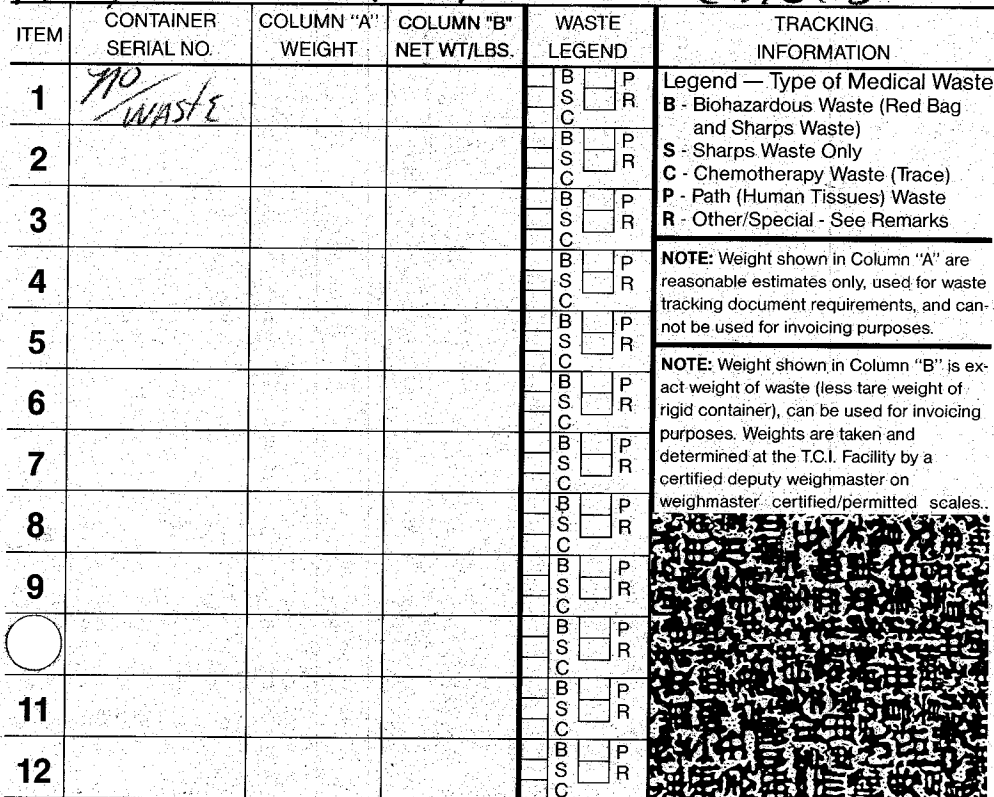 ITEM CONTAINER SERIAL NO. COLUMN "A" WEIGHT COLUMN "B" NET WT/LBS. WASTE LEGEND TRACKING INFORMATION
1 no waste B S C P R
2 B S C P R
3 B S C P R
4 B S C P R
5 B S C P R
6 B S C P R
7 B S C P R
8 B S C P R
9 B S C P R
B S C P R
11 B S C P R
12 B S C P R
Legend — Type of Medical Waste
B - Biohazardous Waste (Red Bag
and Sharps Waste)
S - Sharps Waste Only
C - Chemotherapy Waste (Trace)
P - Path (Human Tissues) Waste
R - Other/Special - See Remarks
NOTE: Weight shown in Column "A" are
reasonable estimates only, used for waste
tracking document requirements, and can-
not be used for invoicing purposes.
NOTE: Weight shown in Column "B" is ex-
act weight of waste (less tare weight of
rigid container), can be used for invoicing
purposes. Weights are taken and
determined at the T.C.I. Facility by a
certified deputy weighmaster on
weighmaster certified/permitted scales..